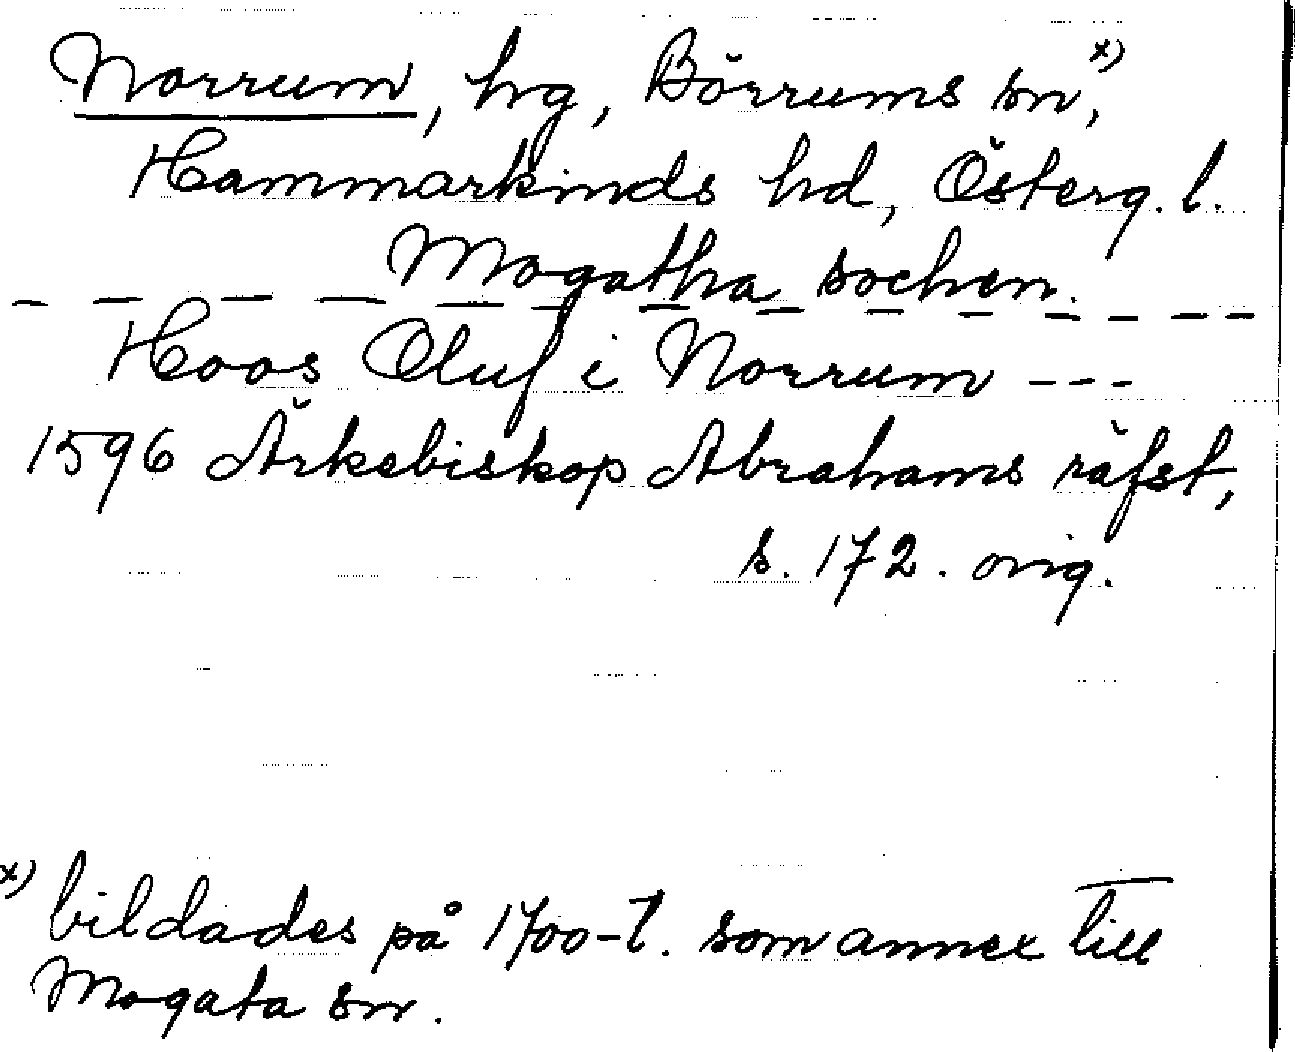 Norrum, hg, Börrums sn,x)
Hammarkinds hd, Österg. l.
Mogatha sochen.
Hoos Oluf i Norrum ---
1596 Ärkebiskop Abrahams räfst,
s. 172. orig.
x) bildades på 1700-t. som annex till
Mogata sn.